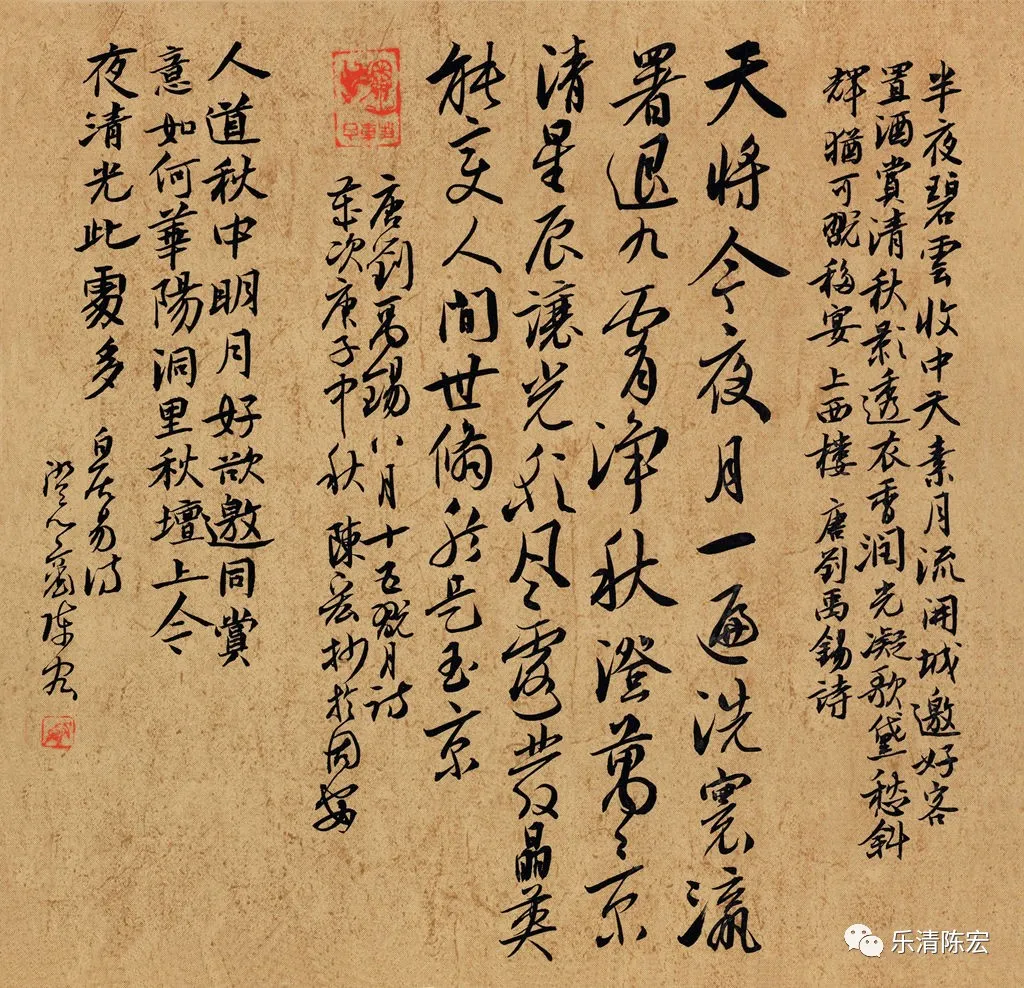 半夜碧雲收中天素月流開城邀好客
置酒賞清秋影透衣香潤光凝歌黛愁斜
輝猶可翫移宴上西樓 唐劉禹錫詩
天將今夜月一遍洗寰瀛
署退九霄淨秋澄萬景
清星辰讓光彩風露發晶英
能变人間世翛然是玉京
唐劉禹錫八月十五翫月詩
歲次庚子中秋 陳宏抄於
人道秋中明月好欲邀同賞
意如何華陽洞里秋壇上今
夜清光此處多 白居易詩
澄心齋陳宏
乐清陈宏